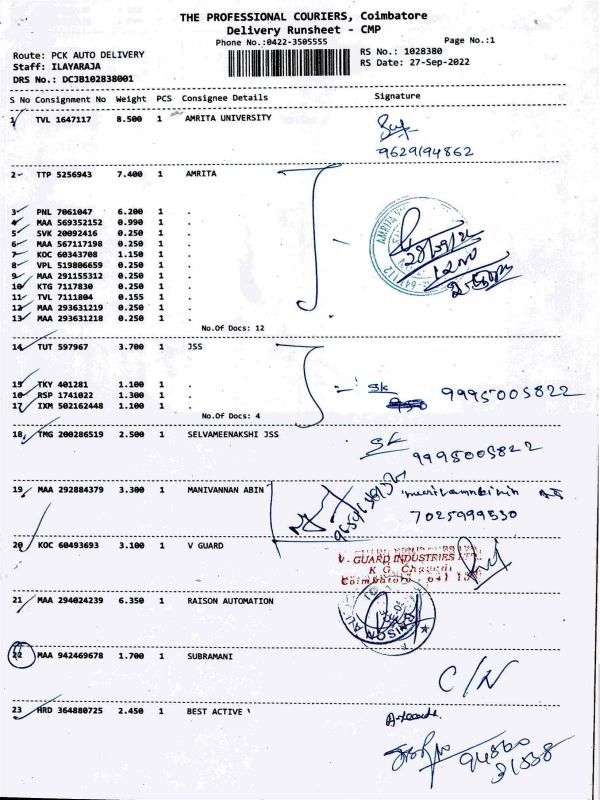 THE PROFESSIONAL COURIERS, Coimbatore
Delivery Runsheet - CMP
Phone No.:0422-3505555
Page No.:1
Route: PCK AUTO DELIVERY
RS No.: 1028380
Staff: ILAYARAJA
RS Date: 27-Sep-2022
DRS No.: DCJB102838001
S No Consignment No Weight PCS Consignee Details Signature
1 TVL 1647117 8.500 1 AMRITA UNIVERSITY
9629194862
2 TTP 5256943 7.400 1 AMRITA
3 PNL 7061047 6.200 1 .
4 MAA 569352152 0.990 1 .
5 SVK 20092416 0.250 1 .
6 MAA 567117198 0.250 1 .
7 KOC 60343708 1.150 1 .
8 VPL 519806659 0.250 1 .
9 MAA 291155312 0.250 1 .
10 KTG 7117830 0.250 1 .
11 TVL 7111804 0.155 1 .
12 MAA 293631219 0.250 1 .
13 MAA 293631218 0.250 1 .
28/09/22
No.Of Docs: 12
14 TUT 597967 3.700 1 JSS
15 TKY 401281 1.100 1 .
16 RSP 1741022 1.300 1 .
17 IXM 502162448 1.100 1 .
SK 9995005822
No.Of Docs: 4
18 TMG 200286519 2.500 1 SELVAMEENAKSHI JSS
SK 9995005822
19 MAA 292884379 3.300 1 MANIVANNAN ABIN
7025999530
20 KOC 60493693 3.100 1 V GUARD
V-GUARD INDUSTRIES LTD.
K G Chavadi
Coimbatore - 641
21 MAA 294024239 6.350 1 RAISON AUTOMATION
22 MAA 942469678 1.700 1 SUBRAMANI
C/N
23 HRD 364880725 2.450 1 BEST ACTIVE